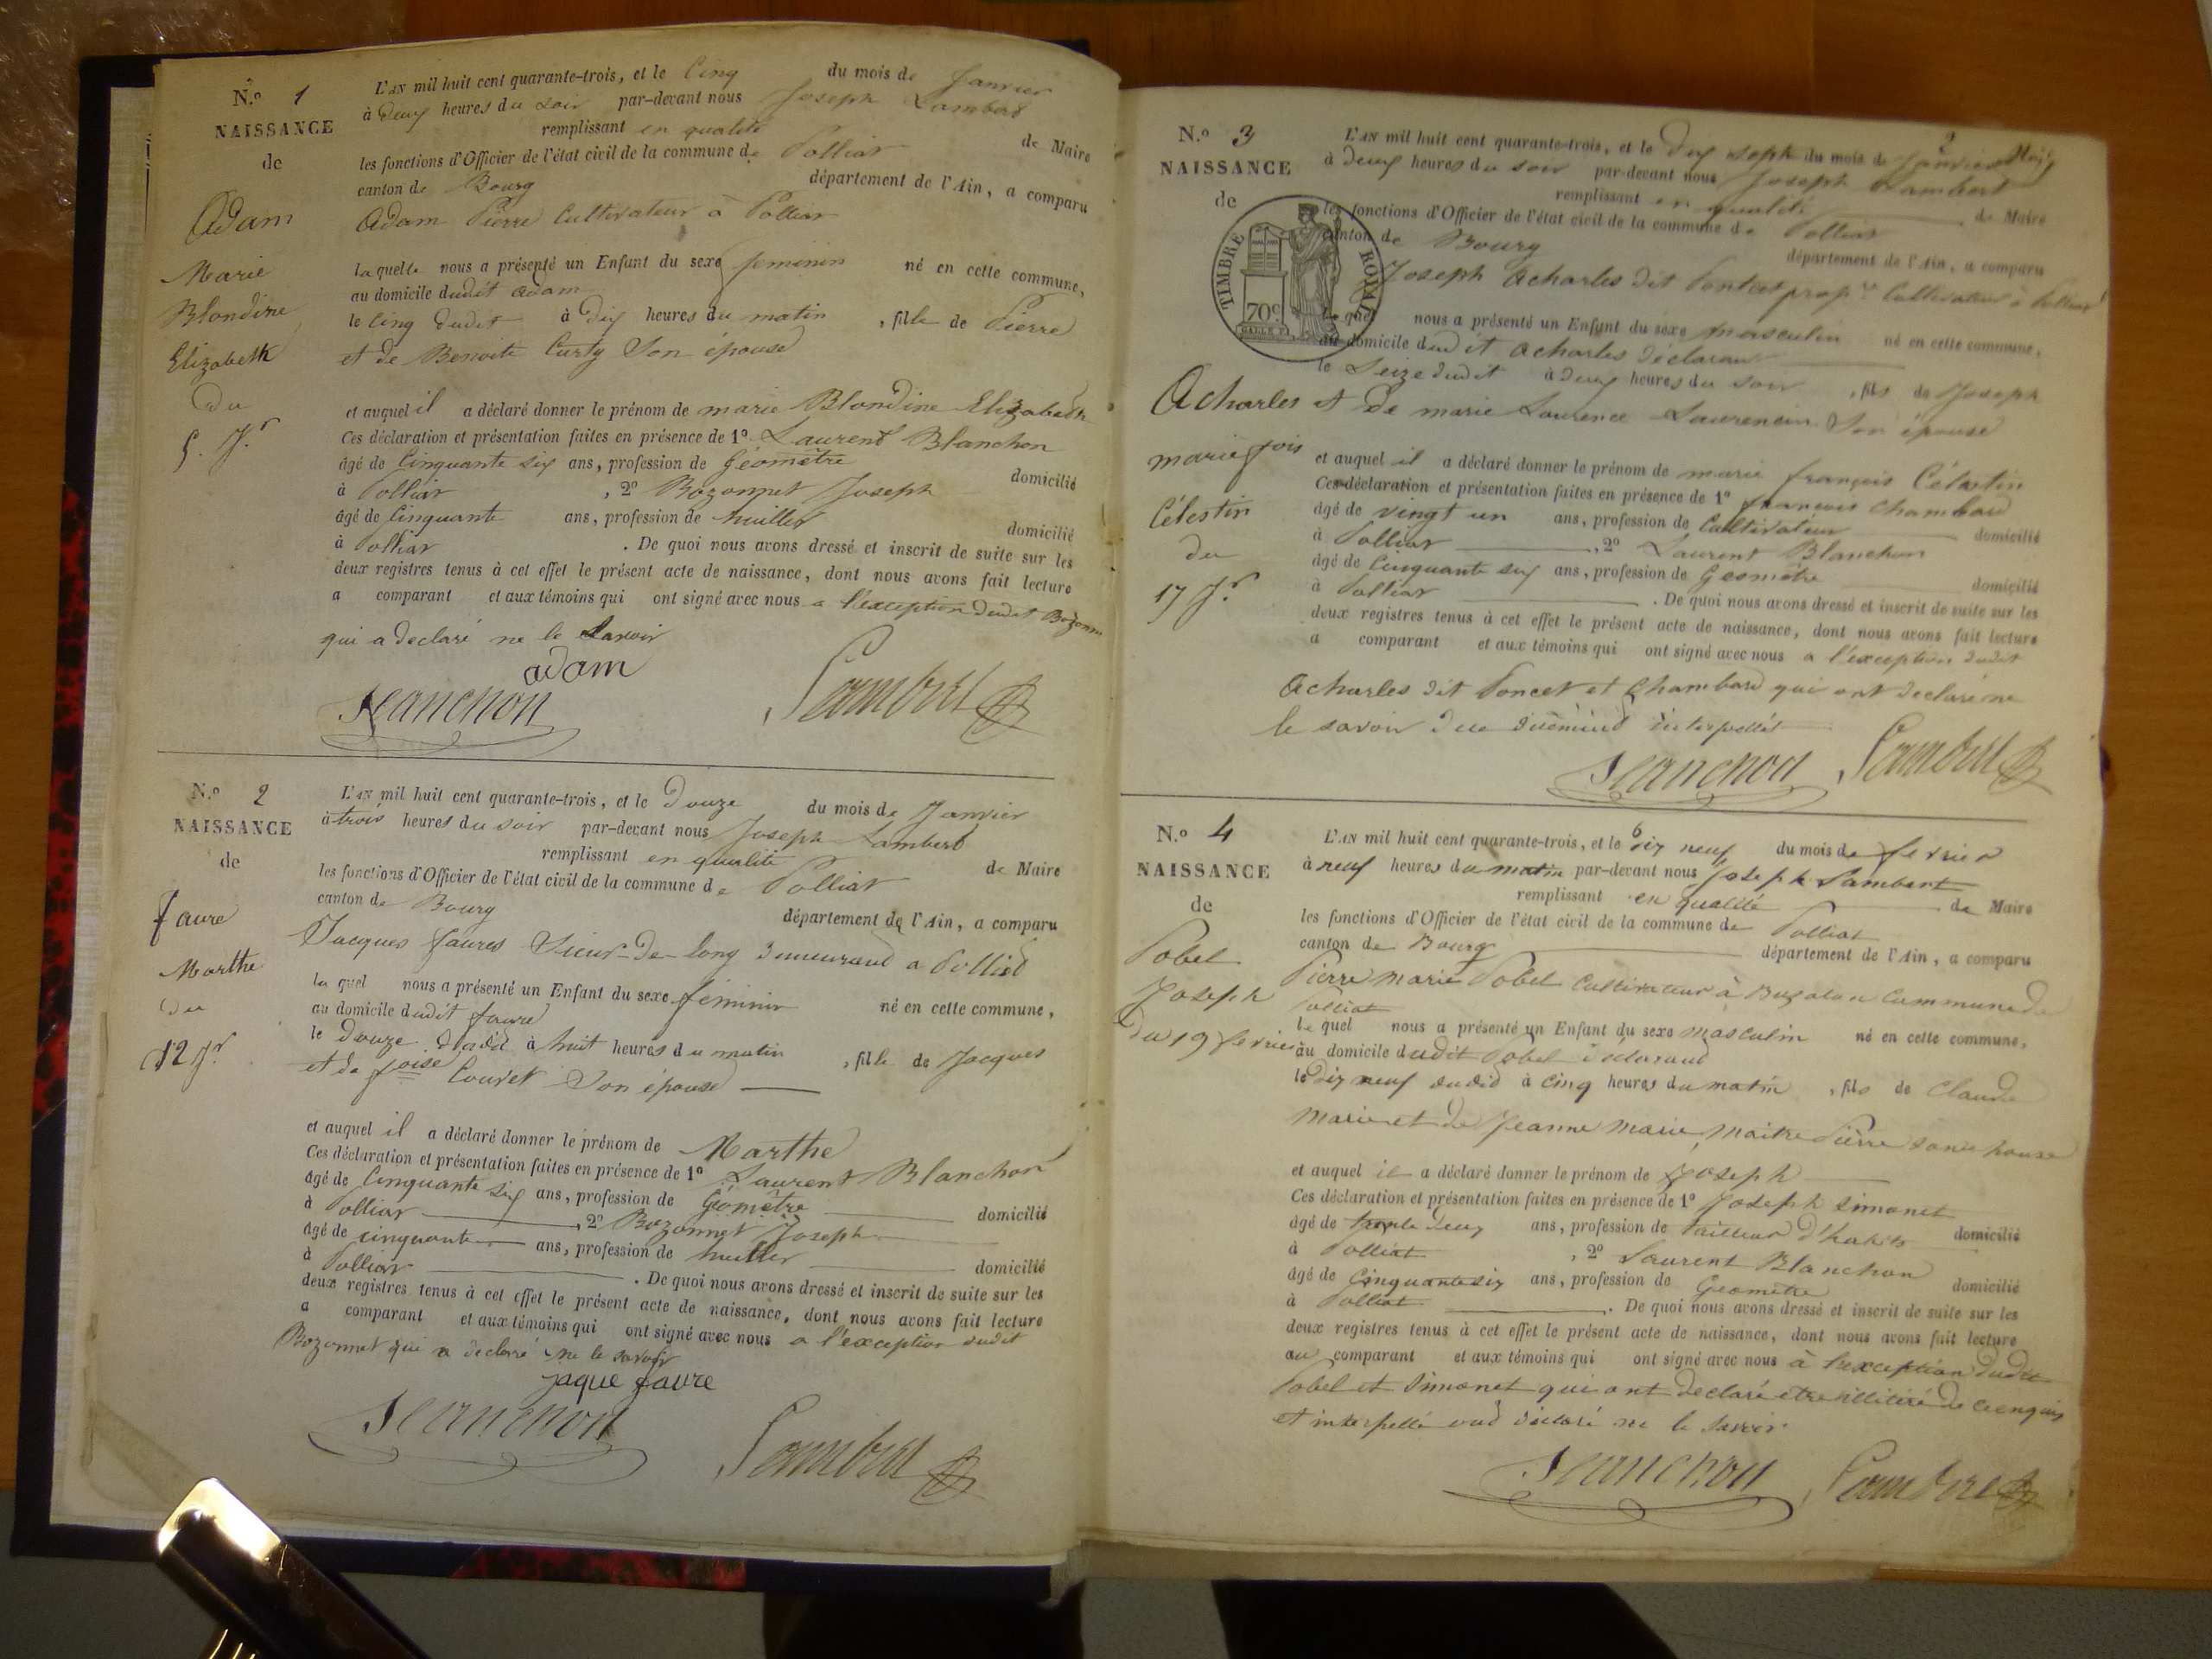 N.o 1
NAISSANCE
de
Adam
Marie
Blondine
Elizabeth
du
5. Jr
L'AN mil huit cent quarante-trois, et le Cinq du mois de Janvier
à deux heures du soir par-devant nous Joseph Lambert
remplissant en qualité de Maire
les fonctions d'Officier de l'état civil de la commune de Polliat
canton de Bourg département de l'Ain, a comparu
Adam Pierre Cultivateur à Polliat
laquelle nous a présenté un Enfant du sexe feminin né en cette commune,
au domicile dudit adam
le Cinq dudit à dix heures du matin, fille de Pierre
et de Benoite Curty Son épouse
et auquel il a déclaré donner le prénom de marie Blondine Elizabeth
Ces déclaration et présentation faites en présence de 1o Laurent Blanchon
âgé de Cinquante six ans, profession de Géomètre domicilié
à Polliat, 2o Bozonnet Joseph
âgé de Cinquante ans, profession de huillier domicilié
à Polliat. De quoi nous avons dressé et inscrit de suite sur les
deux registres tenus à cet effet le présent acte de naissance, dont nous avons fait lecture
a comparant et aux témoins qui ont signé avec nous a l'exception dudit Bozonn
qui a declaré ne le Savoir
adam
Blanchon Lambert
N.o 2
NAISSANCE
de
faure
Marthe
du
12 Jr
L'AN mil huit cent quarante-trois, et le Douze du mois de Janvier
à trois heures du soir par-devant nous Joseph Lambert
remplissant en qualité de Maire
les fonctions d'Officier de l'état civil de la commune de Polliat
canton de Bourg département de l'Ain, a comparu
Jacques faures Sieur-De-long demeurand a Polliat
le quel nous a présenté un Enfant du sexe féminin né en cette commune,
au domicile dudit faure
le Douze dudit à huit heures du matin, fille de Jacques
et de foise Couvet Son épouse
et auquel il a déclaré donner le prénom de Marthe
Ces déclaration et présentation faites en présence de 1o Laurent Blanchon
âgé de Cinquante six ans, profession de Géomètre domicilié
à Polliat, 2o Bozonnet Joseph
âgé de cinquante ans, profession de huillier domicilié
à Polliat. De quoi nous avons dressé et inscrit de suite sur les
deux registres tenus à cet effet le présent acte de naissance, dont nous avons fait lecture
a comparant et aux témoins qui ont signé avec nous a l'exception dudit
Bozonnet qui a declaré ne le savoir
jaque faure
Blanchon Lambert
N.o 3
NAISSANCE
de
Acharles
marie fois
Célestin
du
17 Jr
TIMBRE ROYAL
70c
L'AN mil huit cent quarante-trois, et le dix sept du mois de Janvier
à deux heures du soir par-devant nous Joseph Lambert
remplissant en qualité de Maire
les fonctions d'Officier de l'état civil de la commune de Polliat
canton de Bourg département de l'Ain, a comparu
Joseph Acharles dit Poncet propre Cultivateur à Polliat
le quel nous a présenté un Enfant du sexe masculin né en cette commune,
au domicile dudit Acharles déclarant
le Seize dudit à deux heures du soir, fils de Joseph
et de marie Laurence Laurencin Son épouse
et auquel il a déclaré donner le prénom de marie françois Célestin
Ces déclaration et présentation faites en présence de 1o françois Chambard
âgé de vingt un ans, profession de Cultivateur domicilié
à Polliat, 2o Laurent Blanchon
âgé de Cinquante six ans, profession de Geomètre domicilié
à Polliat. De quoi nous avons dressé et inscrit de suite sur les
deux registres tenus à cet effet le présent acte de naissance, dont nous avons fait lecture
a comparant et aux témoins qui ont signé avec nous a l'exception dudit
Acharles dit Poncet et Chambard qui ont declaré ne
le savoir
Blanchon Lambert
N.o 4
NAISSANCE
de
Pobel
Joseph
Du 19 fevrier
L'AN mil huit cent quarante-trois, et le dix neuf du mois de fevrier
à neuf heures du matin par-devant nous Joseph Lambert
remplissant en qualité de Maire
les fonctions d'Officier de l'état civil de la commune de Polliat
canton de Bourg département de l'Ain, a comparu
Pierre marie Pobel Cultivateur à Commune de
Polliat
le quel nous a présenté un Enfant du sexe masculin né en cette commune,
au domicile dudit Pobel déclarand
le dix neuf dudid à cinq heures du matin, fils de Claude
marie et de Jeanne marie maitre Pierre son epouse
et auquel il a déclaré donner le prénom de Joseph
Ces déclaration et présentation faites en présence de 1o Joseph Simonet
âgé de trente deux ans, profession de Tailleur d'habits domicilié
à Polliat, 2o Laurent Blanchon
âgé de Cinquante six ans, profession de Geomètre domicilié
à Polliat. De quoi nous avons dressé et inscrit de suite sur les
deux registres tenus à cet effet le présent acte de naissance, dont nous avons fait lecture
au comparant et aux témoins qui ont signé avec nous à l'exception dudit
Pobel et Simonet qui ont declaré etre illitéré de ce enquis
et interpellé ond déclaré ne le Savoir
Blanchon Lambert